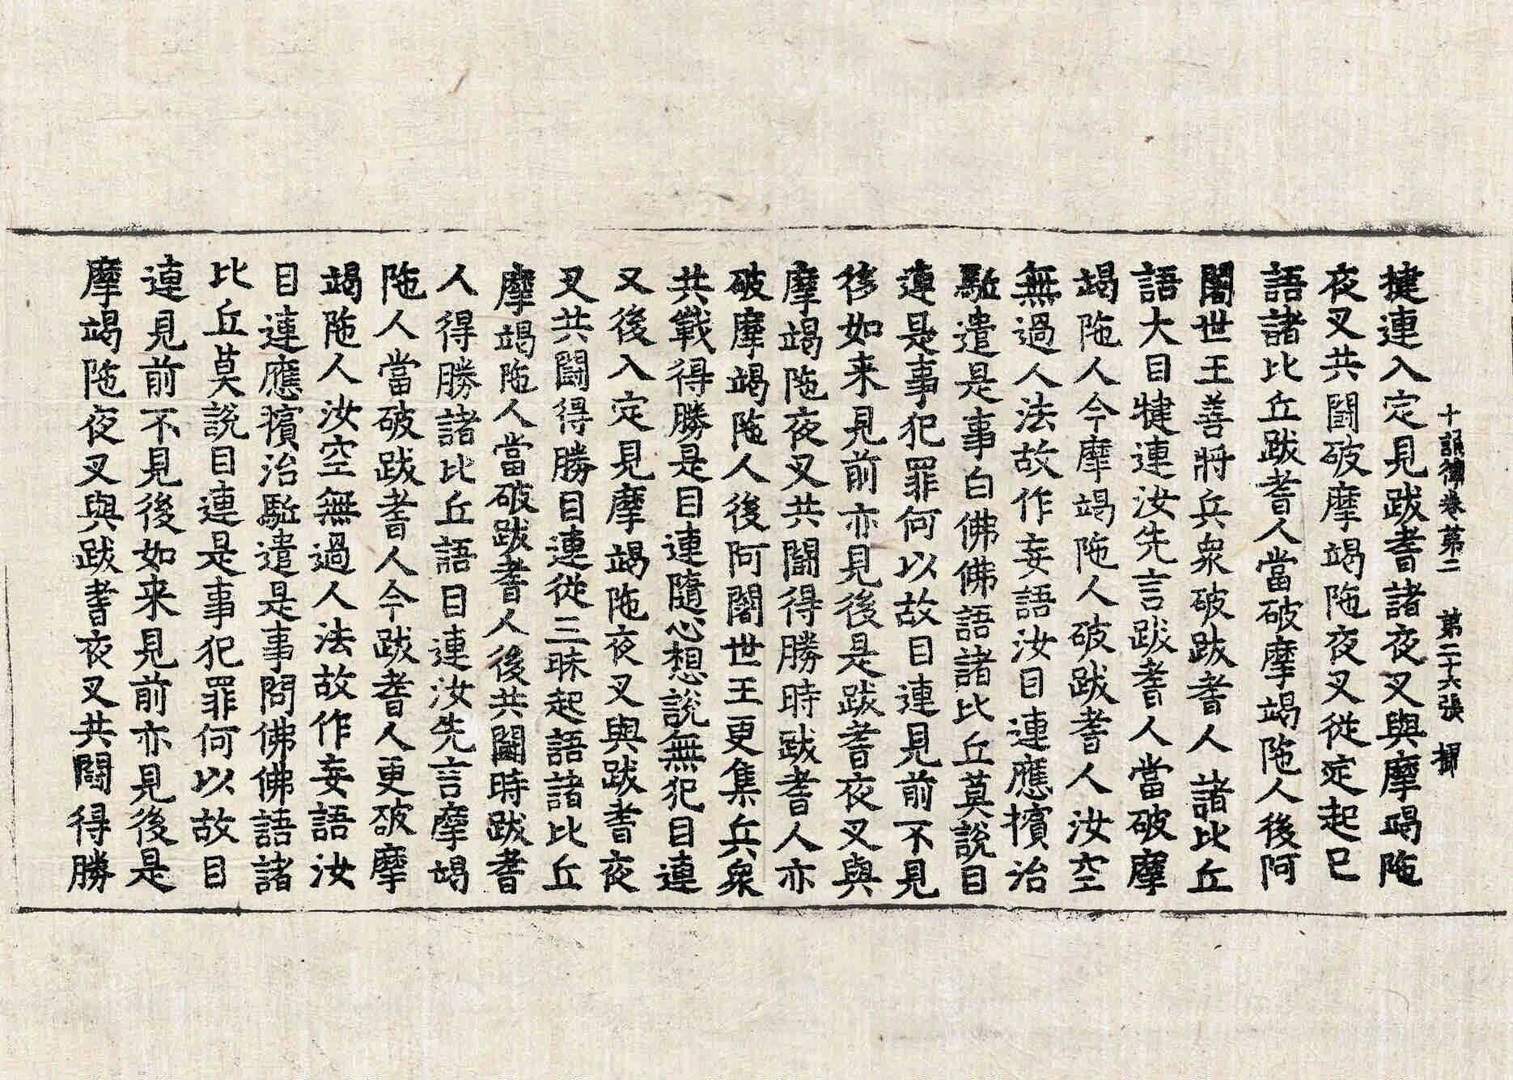 十誦律卷第二　第二十六張　揶
揵連入定見跋耆諸夜叉與摩竭陁
夜叉共闘破摩竭陁夜叉從定起已
語諸比丘跋耆人當破摩竭陁人後阿
闍世王善將兵衆破跋耆人諸比丘
語大目犍連汝先言跋耆人當破摩
竭陁人今摩竭陁人破跋耆人汝空
無過人法故作妄語汝目連應擯治
駈遣是事白佛佛語諸比丘莫說目
連是事犯罪何以故目連見前不見
後如来見前亦見後是跋耆夜叉與
摩竭陁夜叉共闘得勝時跋耆人亦
破摩竭陁人後阿闍世王更集兵衆
共戰得勝是目連隨心想說無犯目連
又後入定見摩竭陁夜叉與跋耆夜
叉共闘得勝目連從三昧起語諸比丘
摩竭陁人當破跋耆人後共闘時跋耆
人得勝諸比丘語目連汝先言摩竭
陁人當破跋耆人今跋耆人更破摩
竭陁人汝空無過人法故作妄語汝
目連應擯治駈遣是事問佛佛語諸
比丘莫說目連是事犯罪何以故目
連見前不見後如来見前亦見後是
摩竭陁夜叉與跋耆夜叉共闘得勝